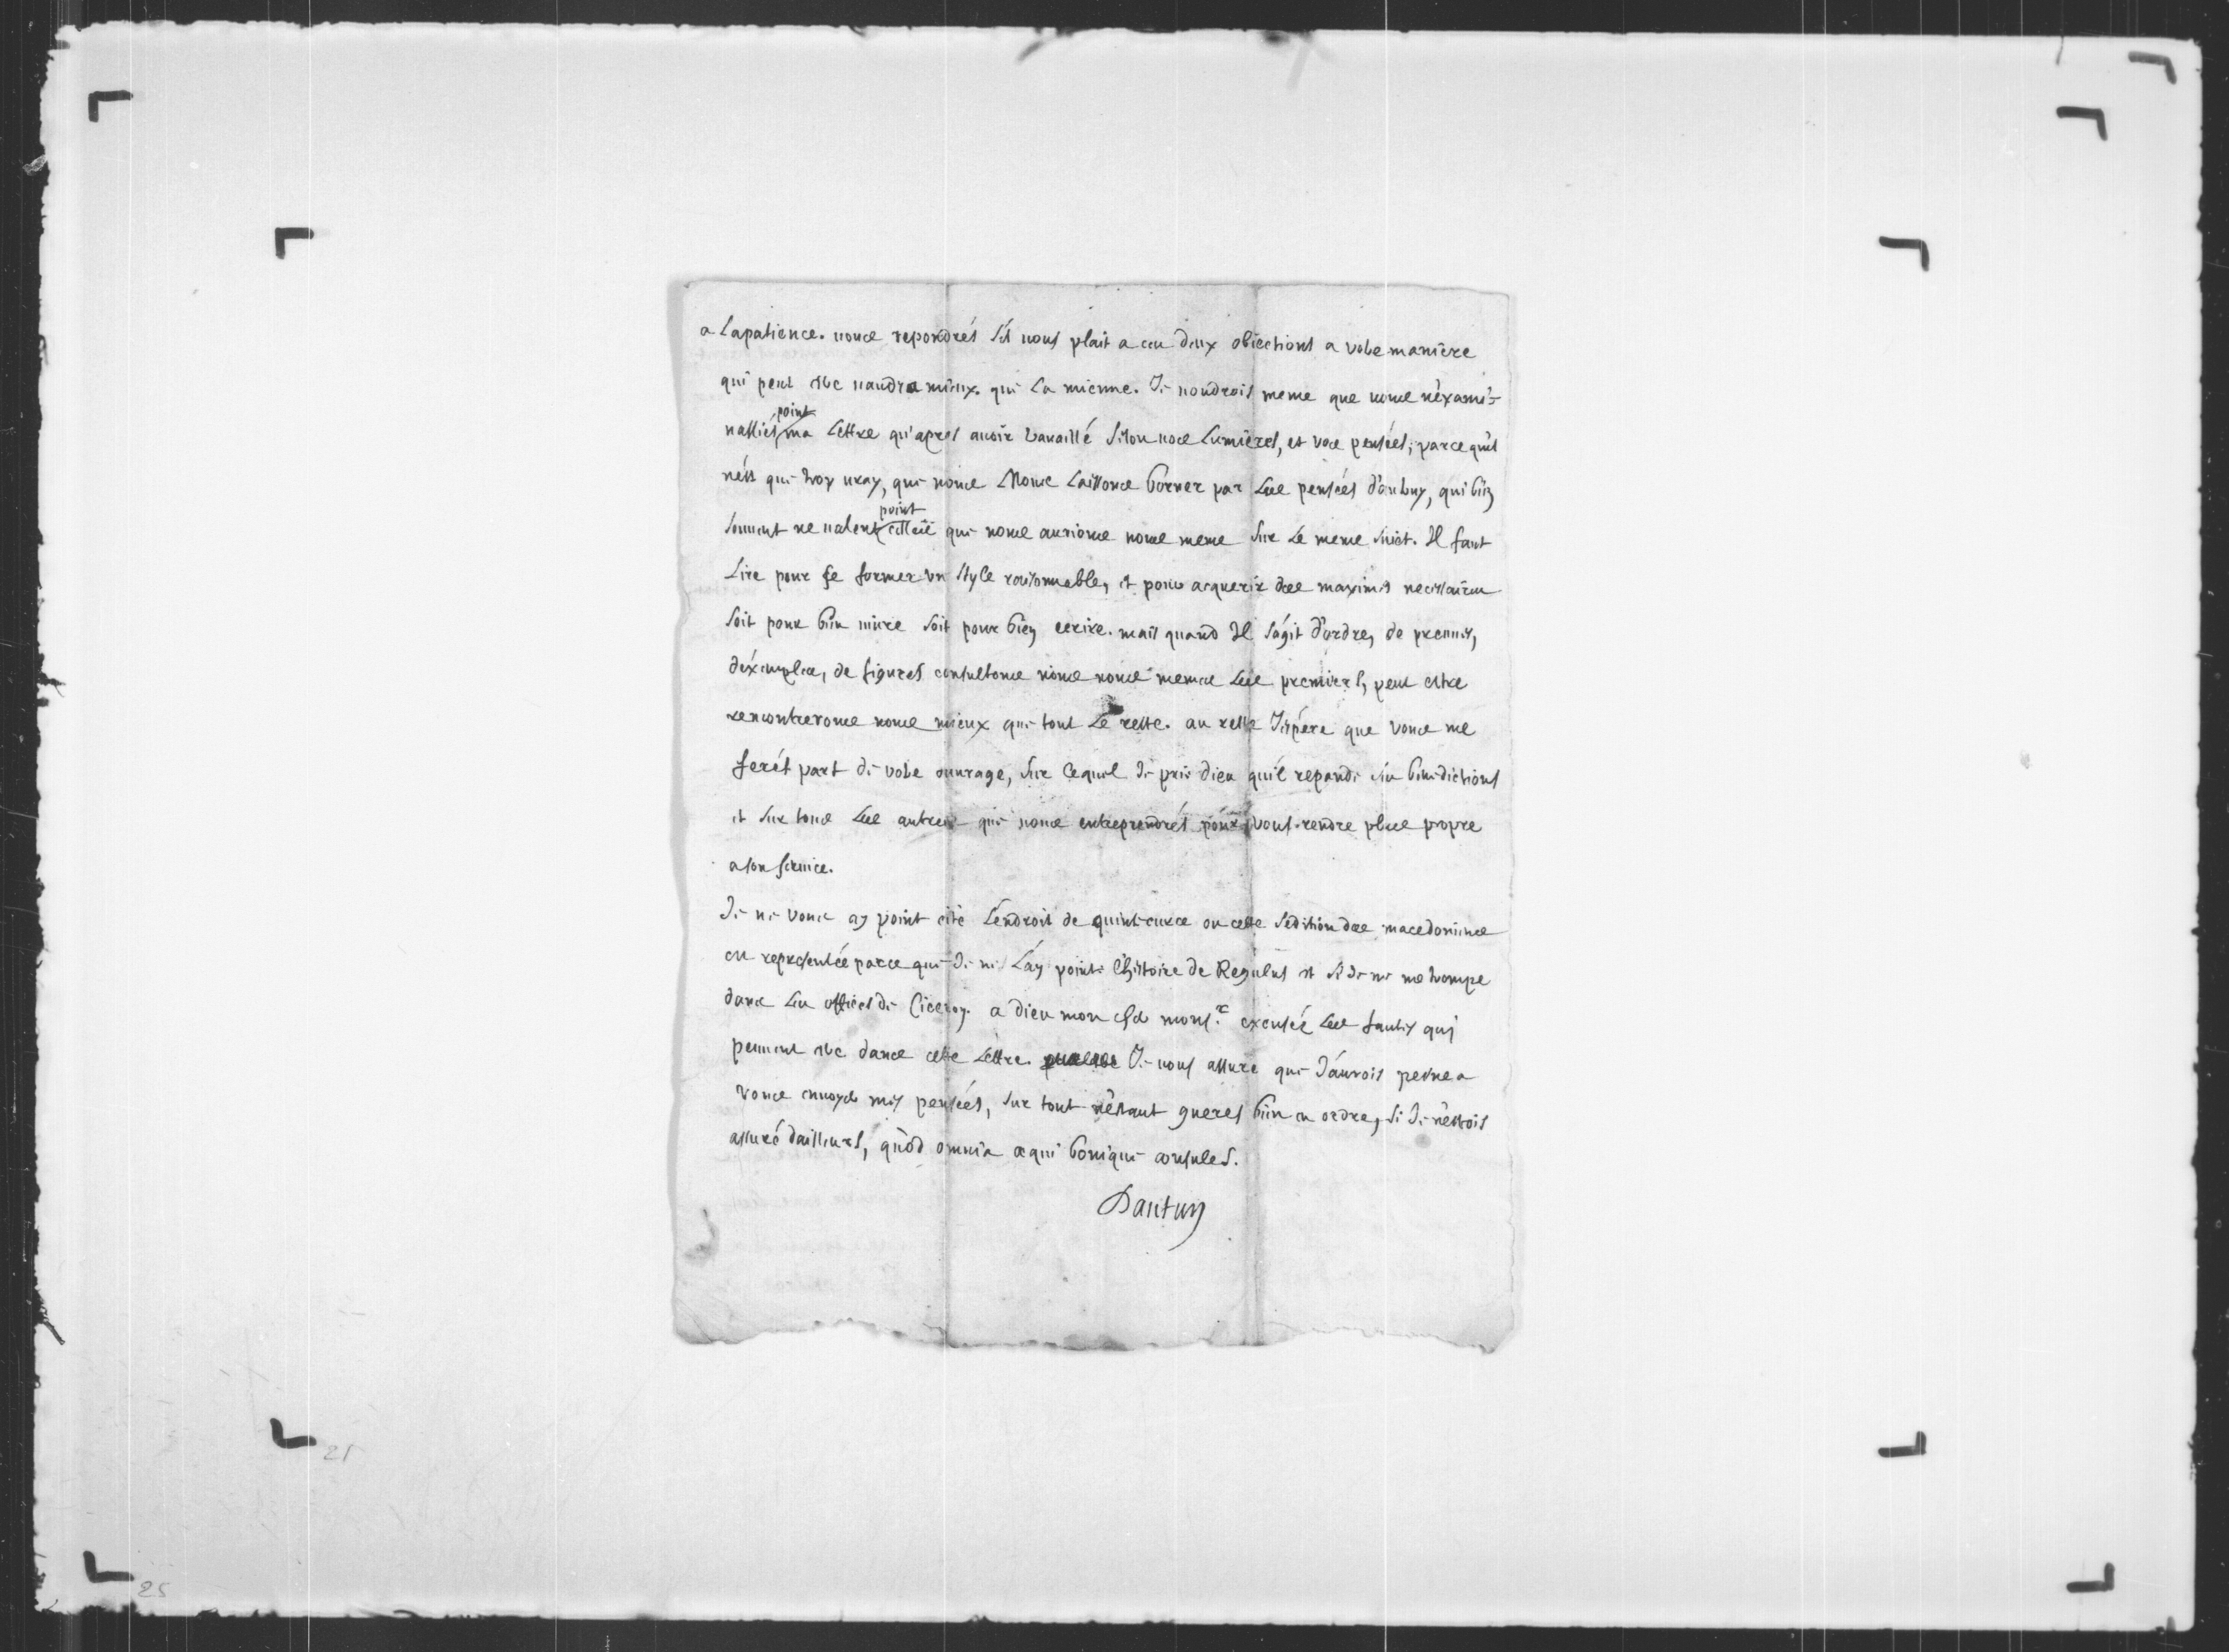 a Lapatience. vous repondrés s'il vous plait a ces deux obiections a votre manière
qui peut etre vaudra mieux. que La mienne. Je voudrois meme que vous n'éxami-
nassiés point ma Lettre qu'apres auoir travaillé selon vos Lumieres, et vos pensées, parce qu'il
nést que trop vray, que nous Nous Laissons borner par Les pensées d'autruy, qui bien
souuent ne valent point celles que nous aurions nous meme sur Le meme suiet. Il faut
Lire pour se former vn style raisonnable, et pour acquerir des maximes necessaires
soit pour bien viure soit pour bien ecrire. mais quand Il s'agit d'ordre, de preuues,
déxemples, de figures consultons nous nous memes Les premiers, peut estre
rencontrerons nous mieux que tout Le reste. au reste J'espére que vous me
ferés part de votre ouurage, sur Lequel Je prie dieu qu'il repande ses benedictions
et sur tous Les autres que vous entreprendrés pour vous rendre plus propre
a son seruice.
Je ne vous ay point cité L'endroit de quint-curce ou cette sedition des macedoniens
est representée parce que Je ne L'ay point. L'histoire de Regulus est si Je ne me trompe
dans Les offices de Ciceron. a dieu mon cher mons.r excusés Les fautes qui
peuuent etre dans cette Lettre. Je vous assure que J'aurois peine a
vous enuoyer mes pensées, sur tout n'éstant gueres bien en ordre, si Je n'éstois
assuré d'ailleurs, quòd omnia æqui bonique consules.
Dautun
21
25